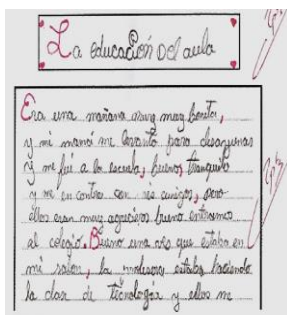 La educación del aula
Era una mañana muy muy bonita,
y mi mamá me levanto para desayunar
y me fué a la escuela, bueno, tranquilo
y me en contre con mis amigos, pero
ellos eran muy agresieros bueno entramos
al colegio. Bueno una ves que estaba en
mi salon, la profesora estaba haciendo
la clase de tícnología y ellos me